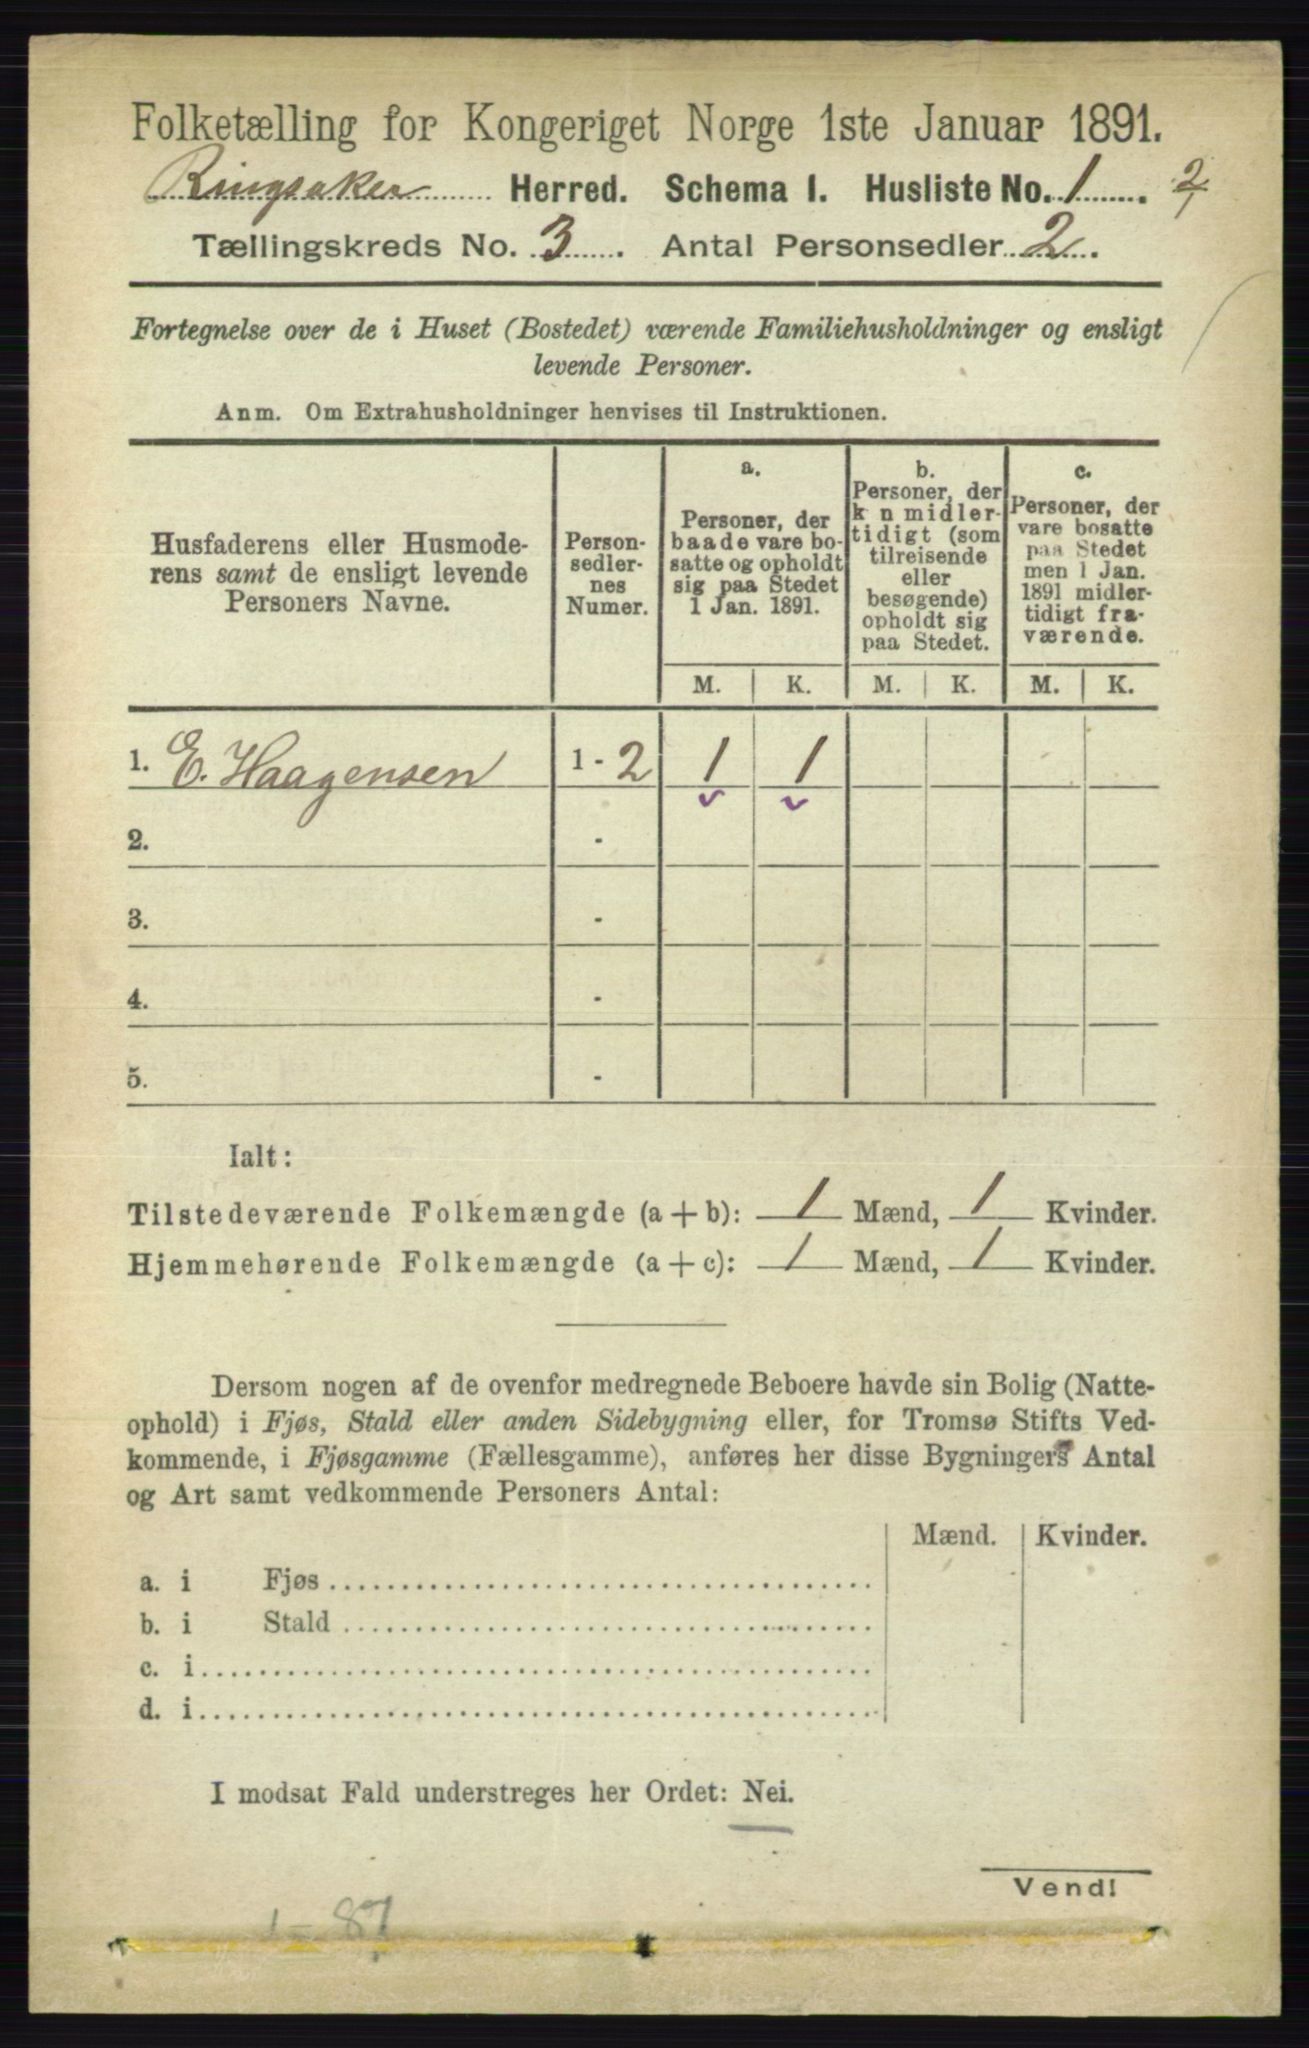 Folketælling for Kongeriget Norge 1ste Januar 1891.
Ringsaker Herred. Schema I. Husliste No. 1 2/1
Tællingskreds No. 3. Antal Personsedler 2.
Fortegnelse over de i Huset (Bostedet) værende Familiehusholdninger og ensligt
levende Personer.
Anm. Om Extrahusholdninger henvises til Instruktionen.
Husfaderens eller Husmode-
rens samt de ensligt levende
Personers Navne.
Person-
sedler-
nes
Numer.
a.
Personer, der
baade vare bo-
satte og opholdt
sig paa Stedet
1 Jan. 1891.
b.
Personer, der
k n midler-
tidigt (som
tilreisende
eller
besøgende)
opholdt sig
paa Stedet.
c.
Personer, der
vare bosatte
paa Stedet
men 1 Jan.
1891 midler-
tidigt fra-
værende.
M. K. M. K. M. K.
1. E. Haagensen 1 - 2 1 1
2. -
3. -
4. -
5. -
Ialt:
Tilstedeværende Folkemængde (a + b): 1 Mænd, 1 Kvinder.
Hjemmehørende Folkemængde (a + c): 1 Mænd, 1 Kvinder.
Dersom nogen af de ovenfor medregnede Beboere havde sin Bolig (Natte-
ophold) i Fjøs, Stald eller anden Sidebygning eller, for Tromsø Stifts Ved-
kommende, i Fjøsgamme (Fællesgamme), anføres her disse Bygningers Antal
og Art samt vedkommende Personers Antal:
Mænd. Kvinder.
a. i Fjøs
b. i Stald
c. i
d. i
I modsat Fald understreges her Ordet: Nei.
Vend!
1 - 87